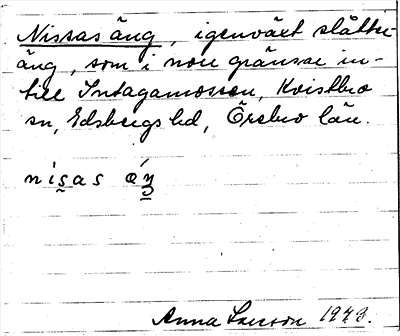 Nissas äng, igenväxt slåtter-
äng, som i norr gränsar in-
till Intagamossen, Kvistbro
sn, Edsbergs hd, Örebro län.
nísas æŋ
Anna Larsson 1948.